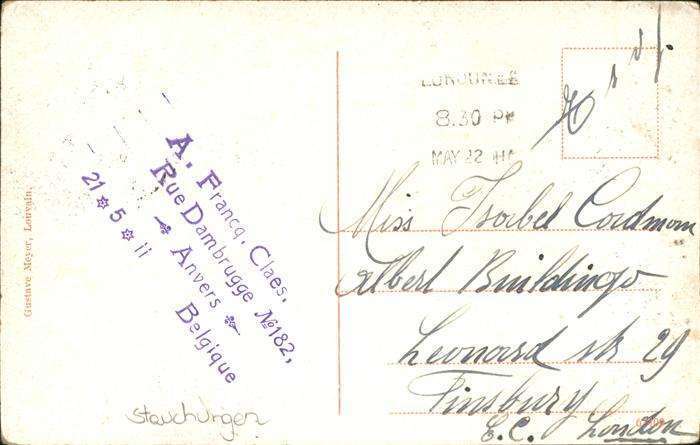 Gustave Meyer, Louvain
A. Francq, Claes.
Rue Dambrugge №182,
Anvers
Belgique
21 5 11
8.30 PM
MAY 22 11
Miss Isabel Cordmom
Albert Buildings
Leonard str 29
Finsbury
E. C. London